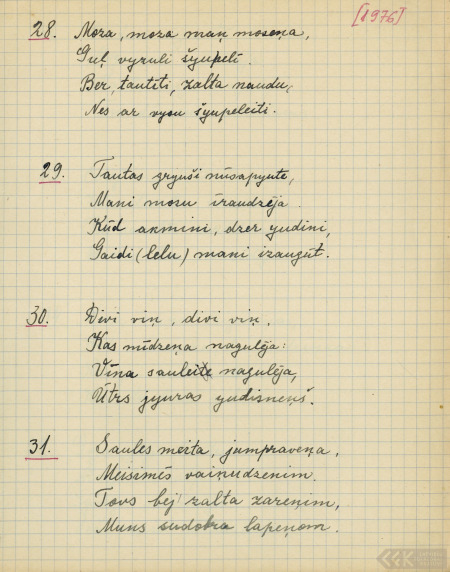 [1976]
28. Moza, moza maņ moseņa,
Guļ vyruli šyupelī.
Ber, tautīti, zalta naudu,
Nes ar vysu šyupeleiti.
29. Tautas gryuši nūsapyute,
Mani mozu īraudzēja.
Kūd akmini, dzer yudini,
Gaidi (lelu) mani izaugūt.
30. Divi viņ, divi viņ,
Kas mīdzeņa nagulēja:
Vīna sauleite nagulēja,
Ūtrs jyuras yudisneņš.
31. Saules meita, jumpraveņa,
Meisimēs vaiņudzenim.
Tovs bej zalta zareņim,
Muns sudobra lapeņom.